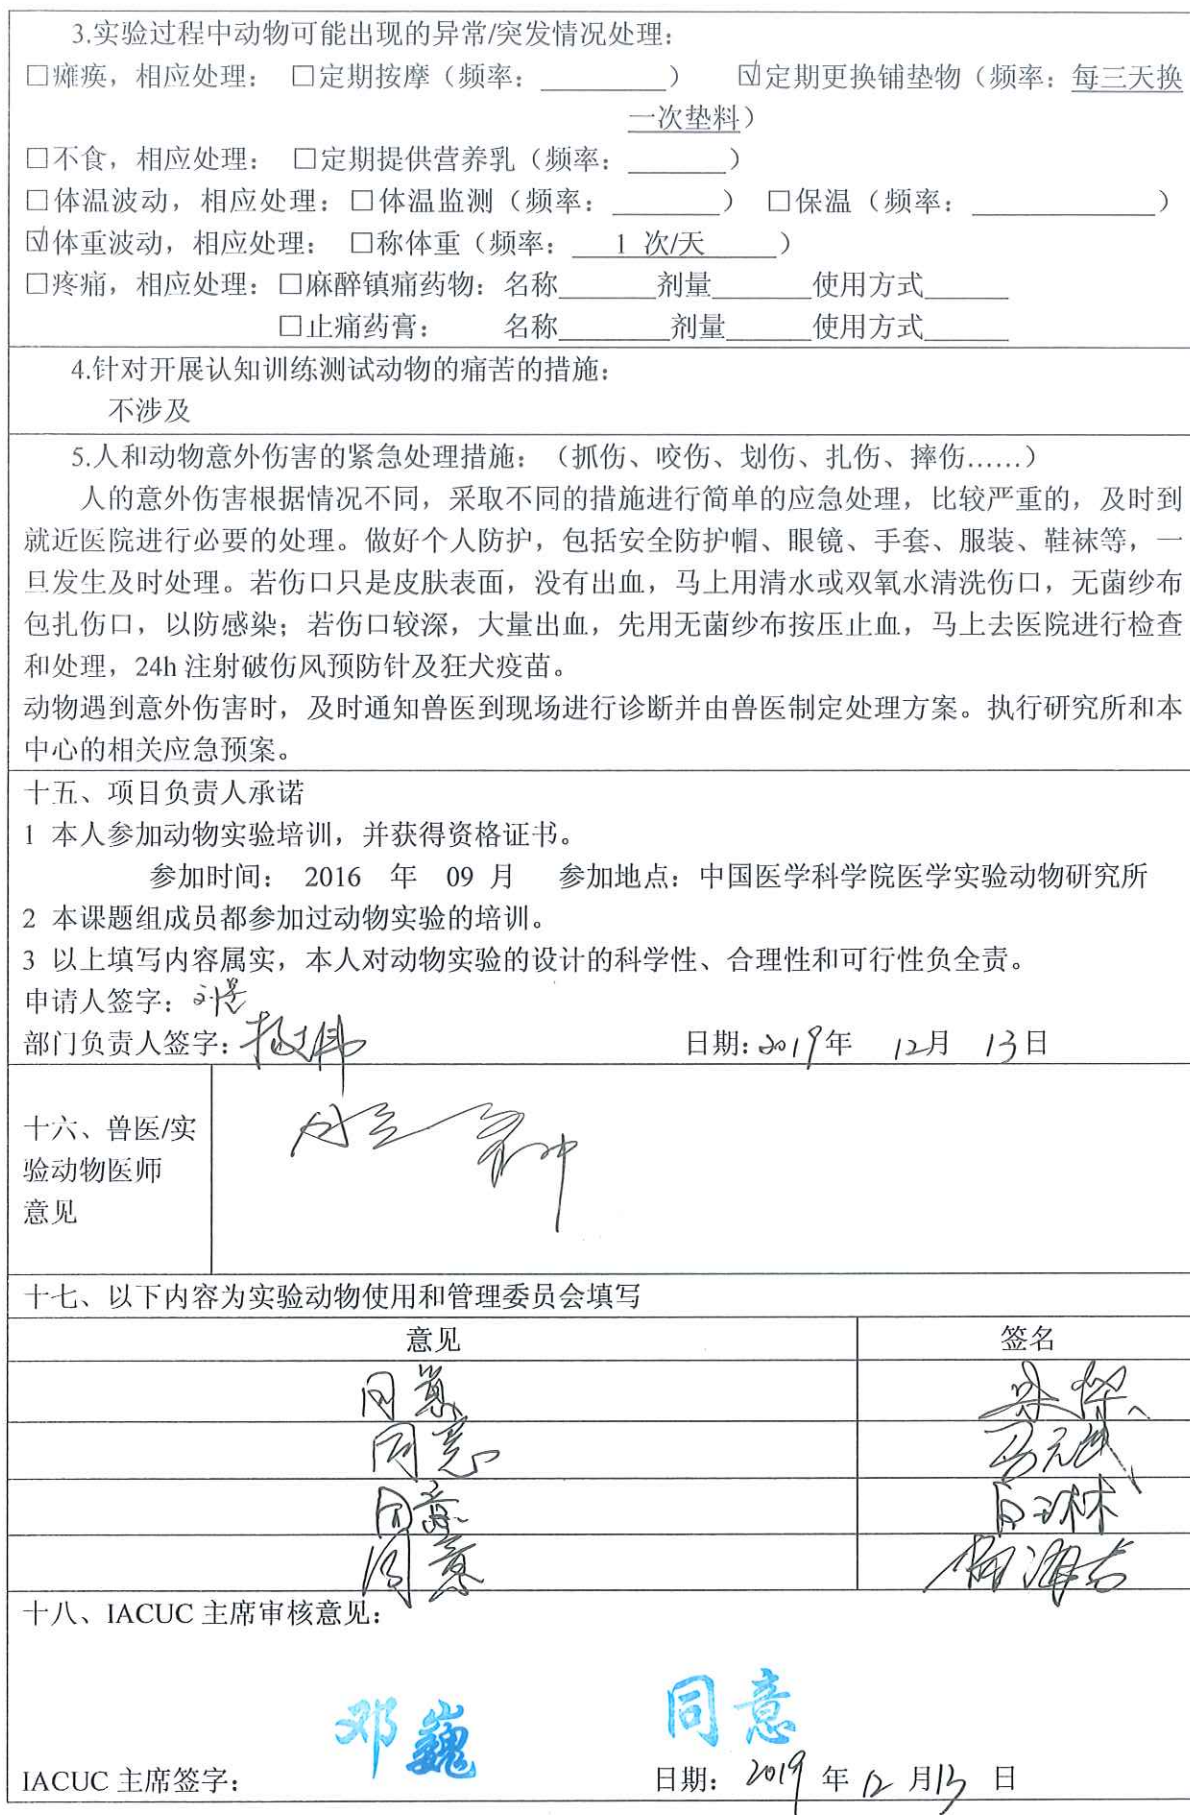 3.实验过程中动物可能出现的异常/突发情况处理：
□瘫痪，相应处理： □定期按摩（频率：________） ☑定期更换铺垫物（频率：每三天换
一次垫料）
□不食，相应处理： □定期提供营养乳（频率：______）
□体温波动，相应处理：□体温监测（频率：______） □保温（频率：__________）
☑体重波动，相应处理： □称体重（频率： 1 次/天 ）
□疼痛，相应处理：□麻醉镇痛药物：名称______剂量______使用方式_____
□止痛药膏： 名称______剂量______使用方式_____
4.针对开展认知训练测试动物的痛苦的措施：
不涉及
5.人和动物意外伤害的紧急处理措施：（抓伤、咬伤、划伤、扎伤、摔伤……）
人的意外伤害根据情况不同，采取不同的措施进行简单的应急处理，比较严重的，及时到
就近医院进行必要的处理。做好个人防护，包括安全防护帽、眼镜、手套、服装、鞋袜等，一
旦发生及时处理。若伤口只是皮肤表面，没有出血，马上用清水或双氧水清洗伤口，无菌纱布
包扎伤口，以防感染；若伤口较深，大量出血，先用无菌纱布按压止血，马上去医院进行检查
和处理，24h 注射破伤风预防针及狂犬疫苗。
动物遇到意外伤害时，及时通知兽医到现场进行诊断并由兽医制定处理方案。执行研究所和本
中心的相关应急预案。
十五、项目负责人承诺
1 本人参加动物实验培训，并获得资格证书。
参加时间： 2016 年 09 月 参加地点：中国医学科学院医学实验动物研究所
2 本课题组成员都参加过动物实验的培训。
3 以上填写内容属实，本人对动物实验的设计的科学性、合理性和可行性负全责。
申请人签字：
部门负责人签字： 日期：2019年 12月 13日
十六、兽医/实
验动物医师
意见
十七、以下内容为实验动物使用和管理委员会填写
意见 签名
同意
同意 马元武
同意 白琳
同意
十八、IACUC 主席审核意见：
邓巍 同意
IACUC 主席签字： 日期： 2019 年 12 月13 日